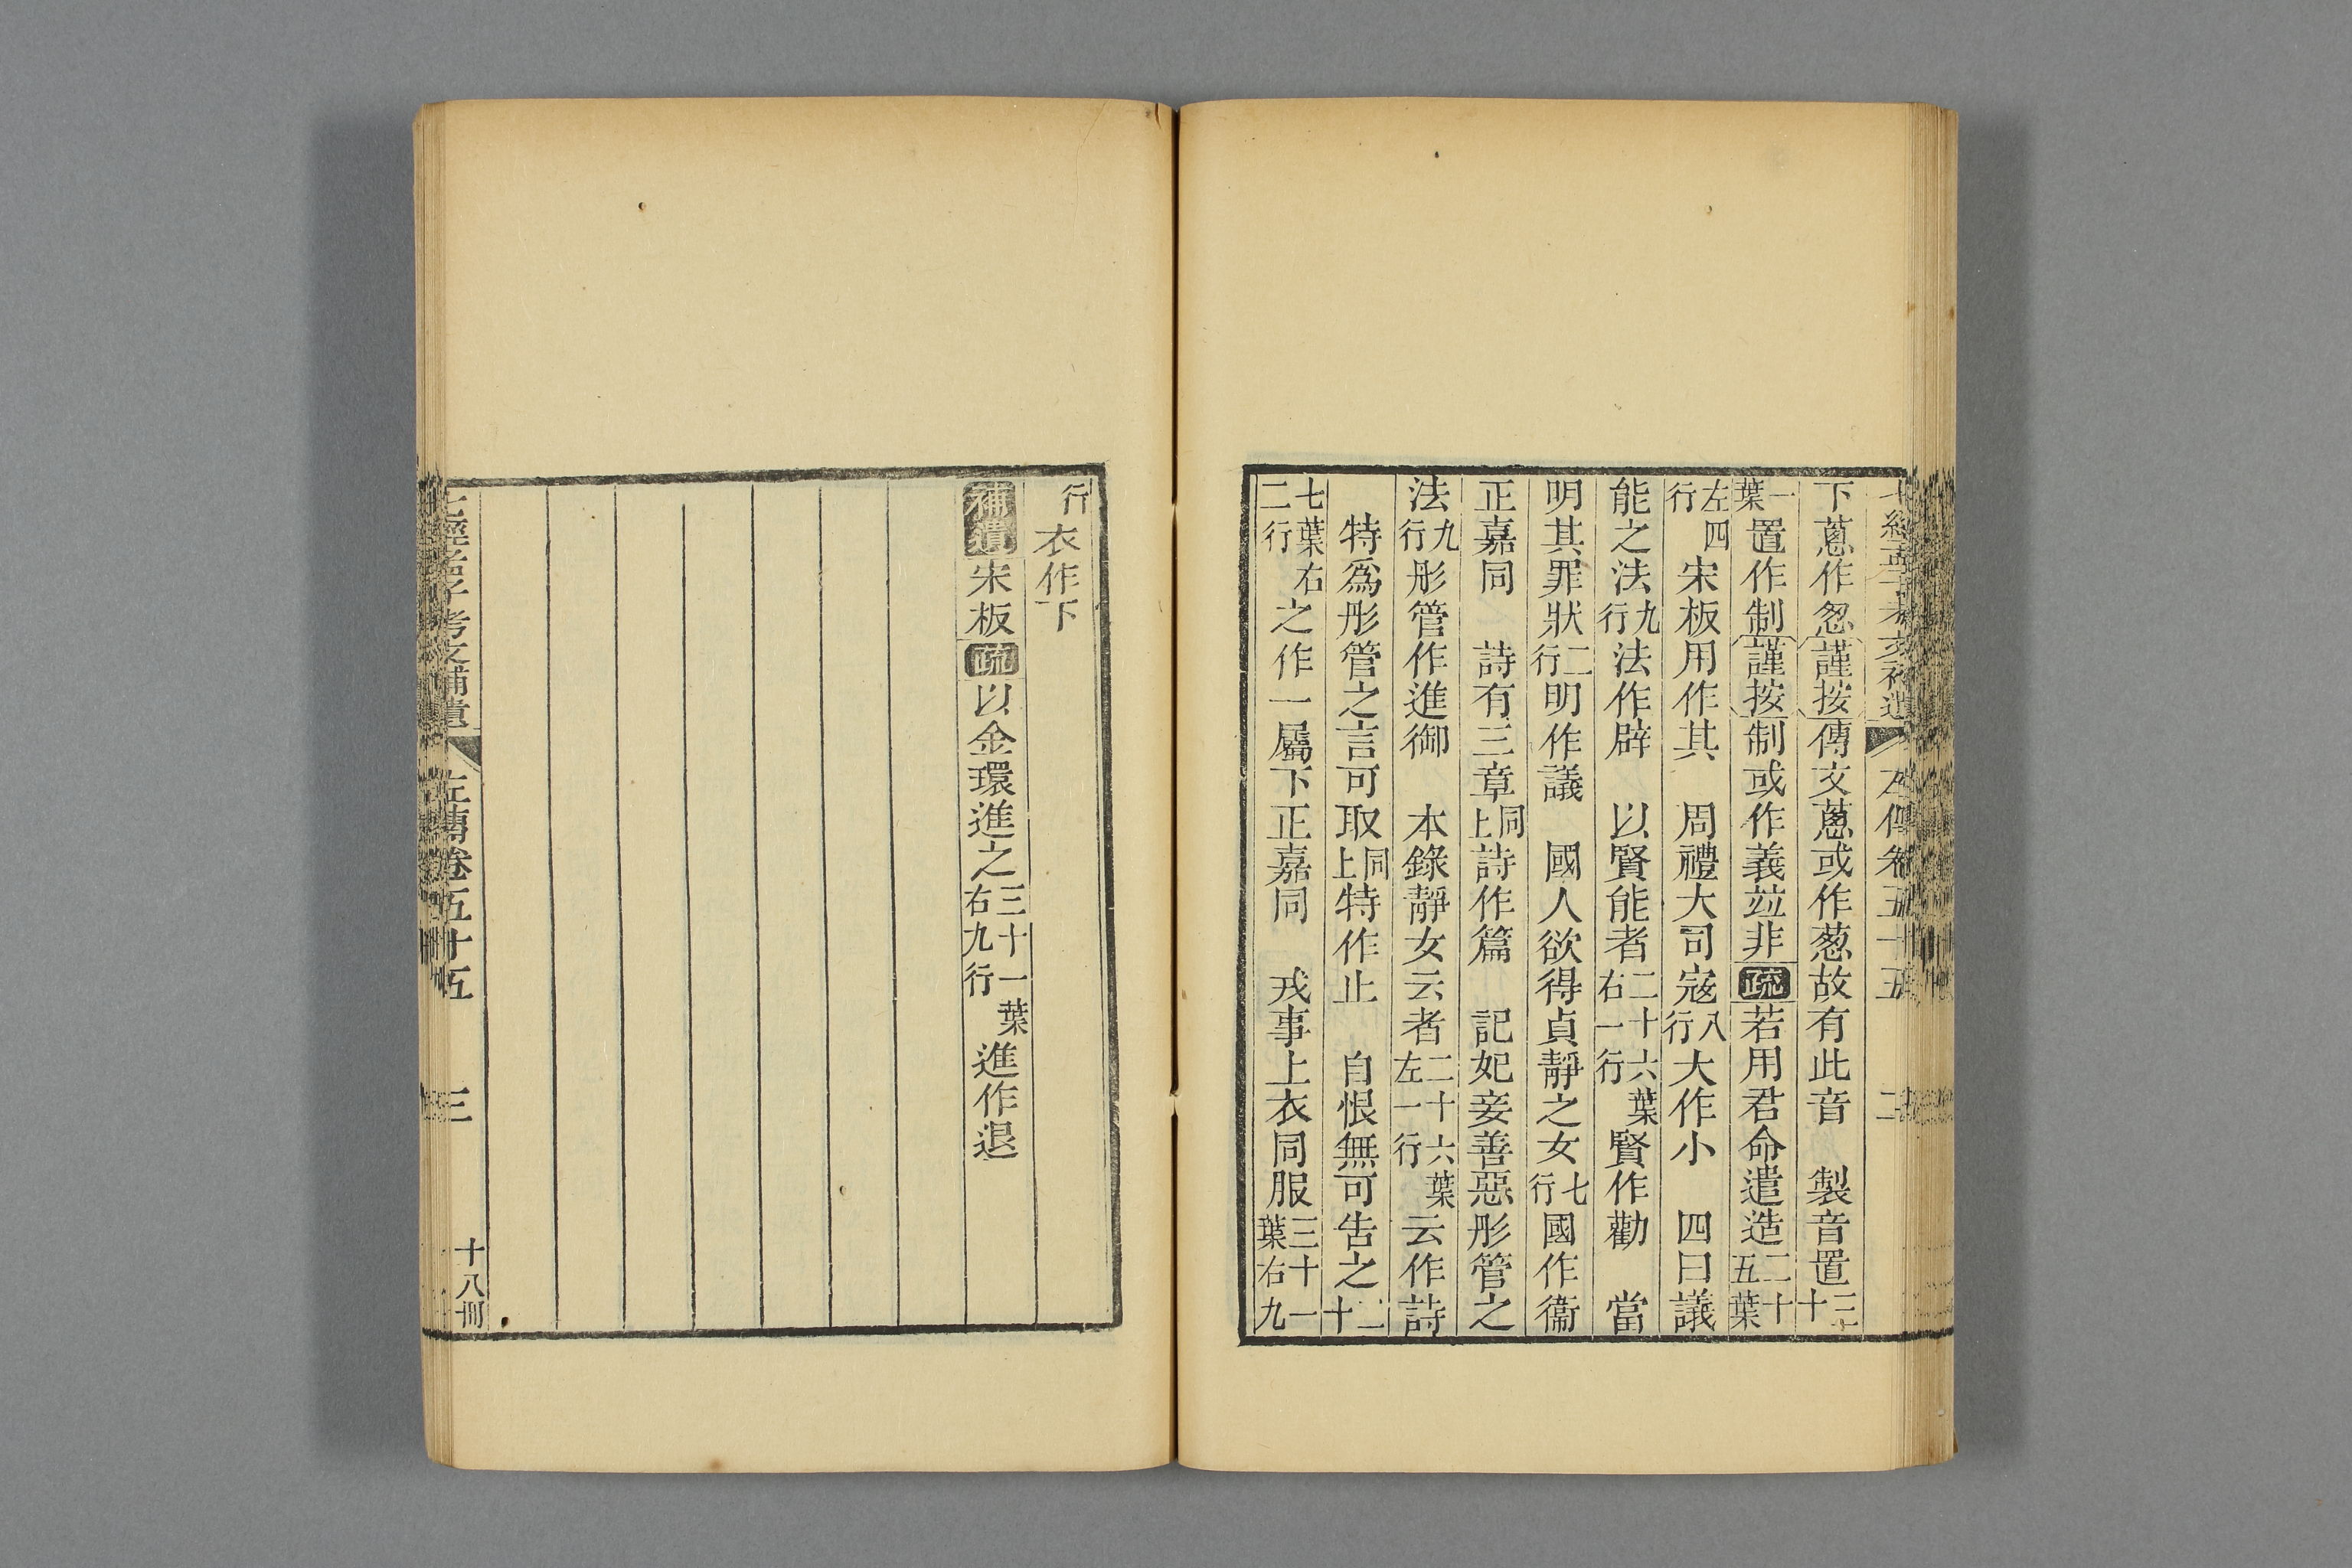 下蔥作忽謹按傳文蔥或作葱故有此音　製音置二十
一葉左四行置作制謹按制或作義竝非疏若用君命遣造二十五葉
左四行宋板用作其　周禮大司寇八行大作小　四曰議
能之法九行法作辟　以賢能者二十六葉右一行賢作勸　當
明其罪狀二行明作議　國人欲得貞靜之女七行國作衞
正嘉同　詩有三章同上詩作篇　記妃妾善惡彤管之
法九行彤管作進御　本錄靜女云者二十六葉左一行云作詩
特爲彤管之言可取同上特作止　自恨無可告之二十
七葉右二行之作一屬下正嘉同　戎事上衣同服三十一葉右九
行衣作下
補遺宋板疏以金環進之三十一葉右九行進作退
七經孟子考文補遺　左傳卷五十五　三　十八冊